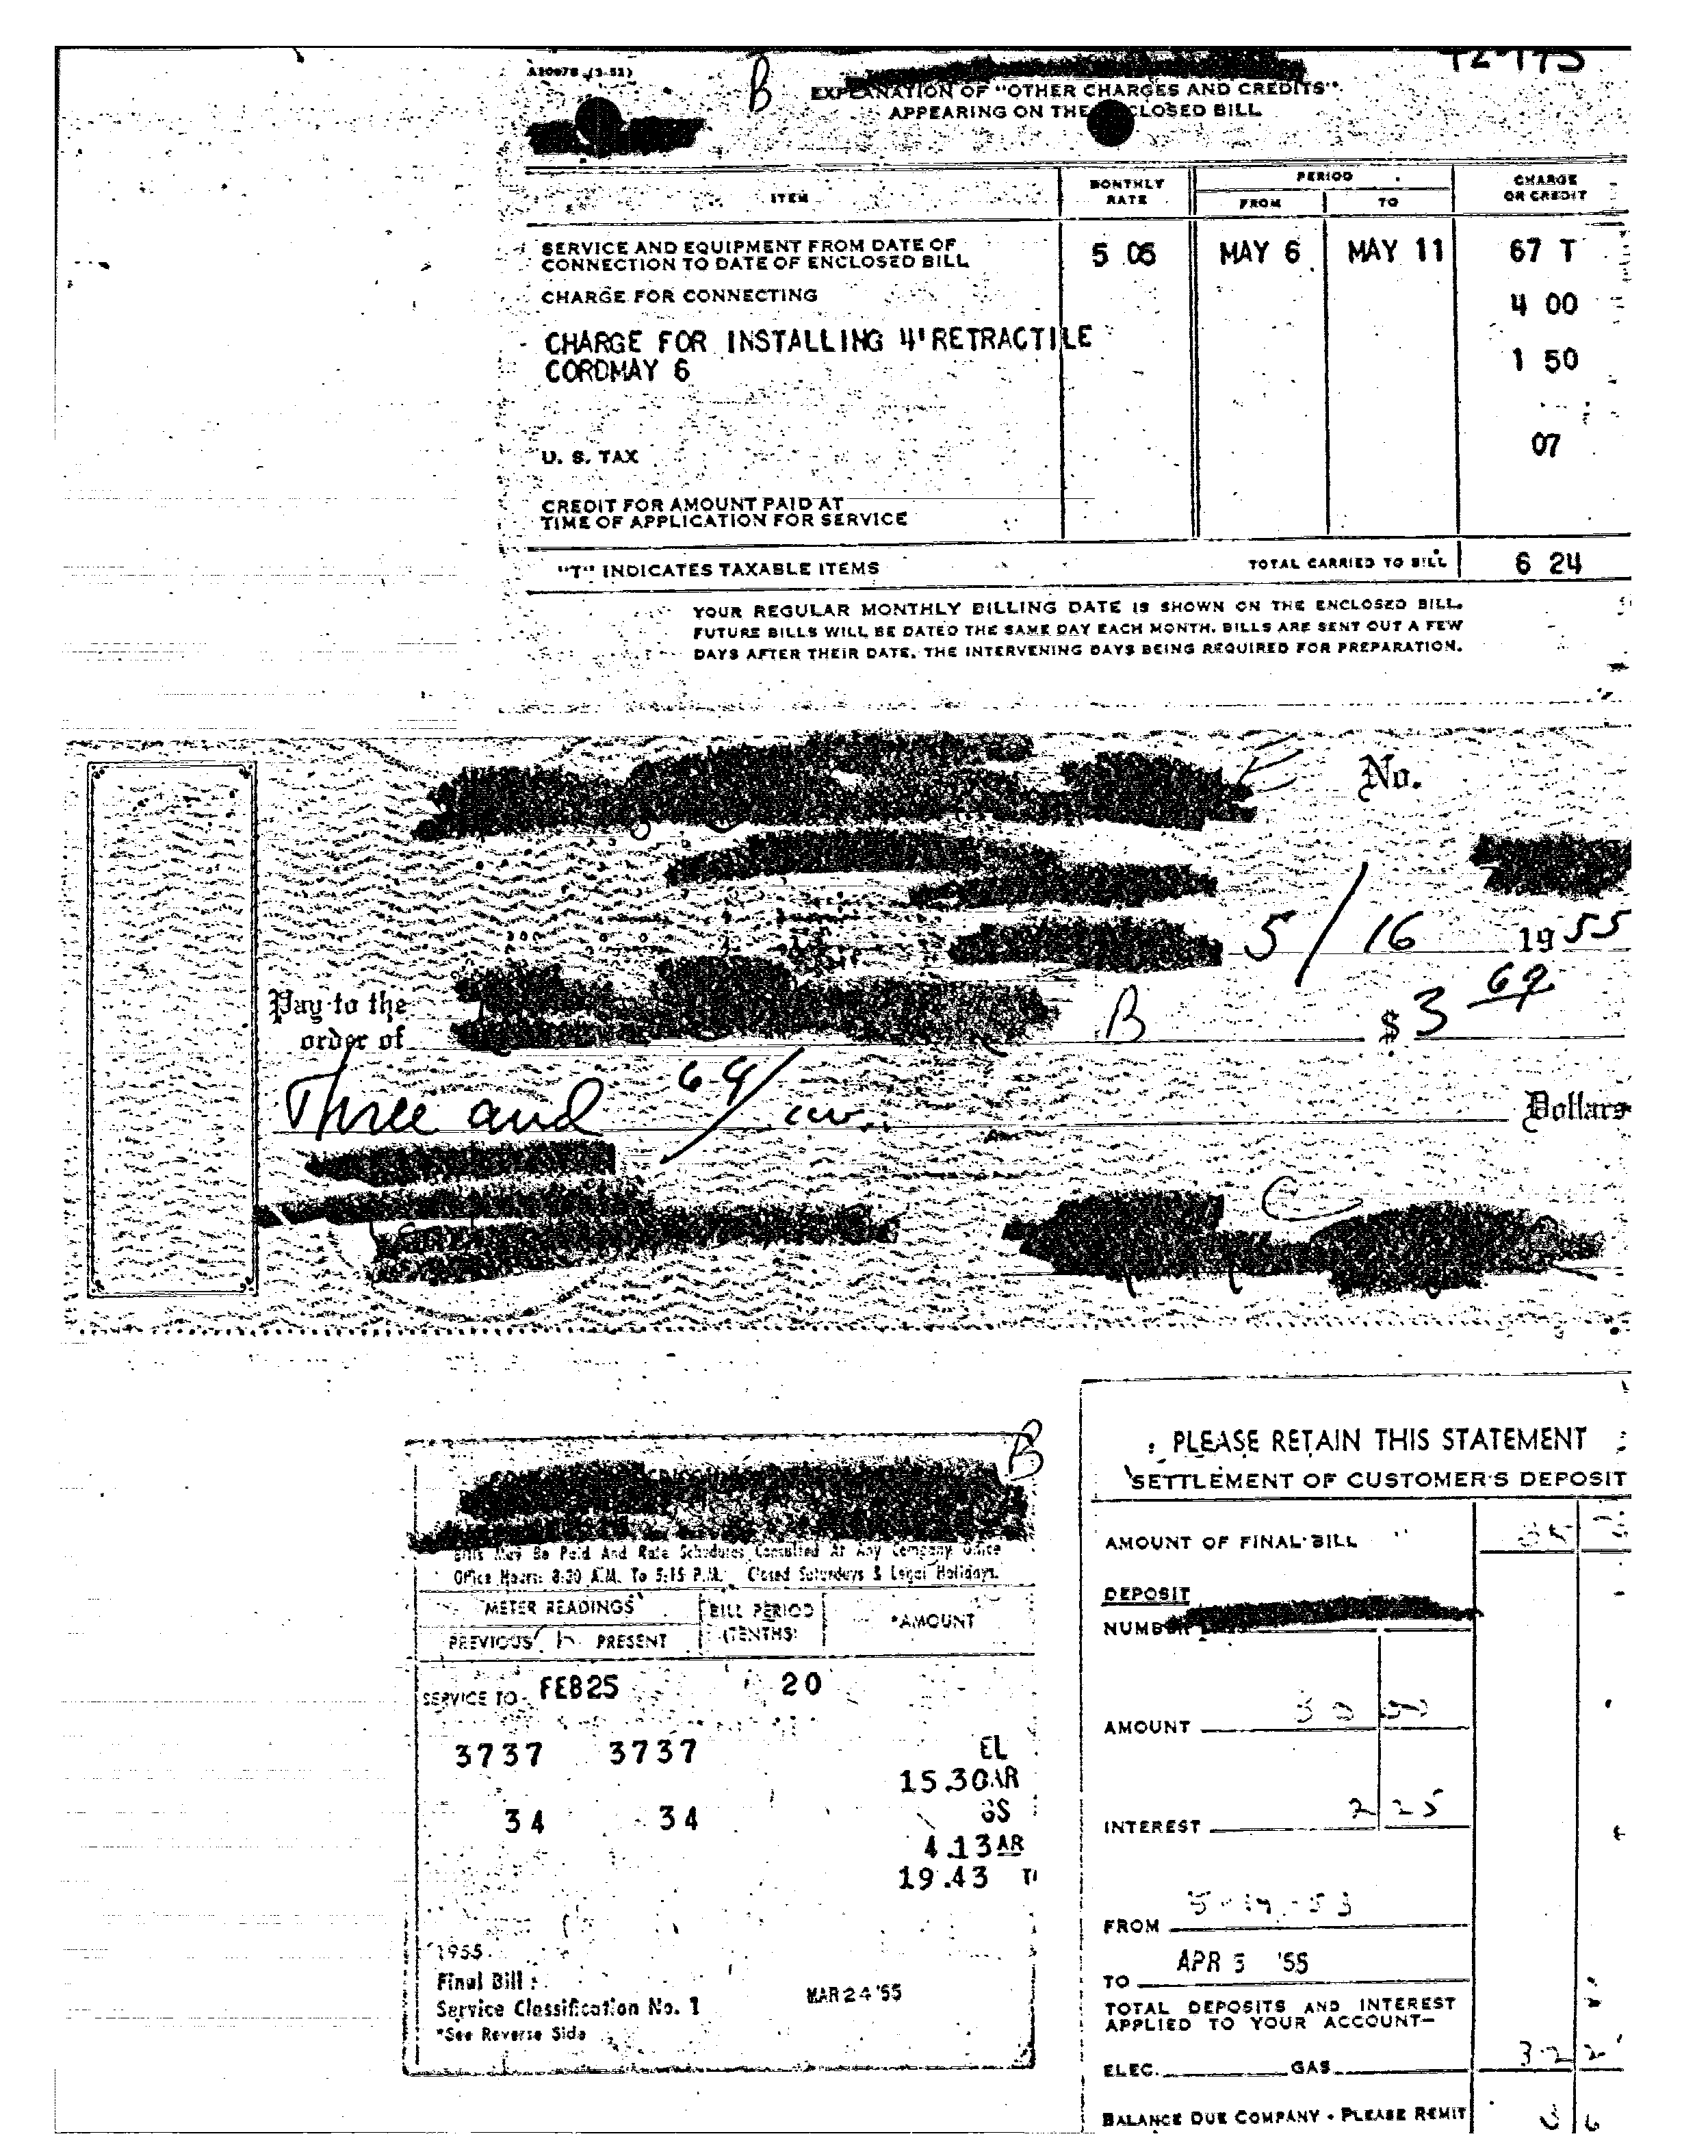 A10078 (3-53)
B
EXPLANATION OF "OTHER CHARGES AND CREDITS"
APPEARING ON THE CLOSED BILL
ITEM MONTHLY RATE PERIOD FROM TO CHARGE OR CREDIT
SERVICE AND EQUIPMENT FROM DATE OF
CONNECTION TO DATE OF ENCLOSED BILL 5 05 MAY 6 MAY 11 67 T
CHARGE FOR CONNECTING 4 00
CHARGE FOR INSTALLING 4' RETRACTILE
CORDMAY 6 1 50
U. S. TAX 07
CREDIT FOR AMOUNT PAID AT
TIME OF APPLICATION FOR SERVICE
"T" INDICATES TAXABLE ITEMS TOTAL CARRIED TO BILL 6 24
YOUR REGULAR MONTHLY BILLING DATE IS SHOWN ON THE ENCLOSED BILL.
FUTURE BILLS WILL BE DATED THE SAME DAY EACH MONTH. BILLS ARE SENT OUT A FEW
DAYS AFTER THEIR DATE, THE INTERVENING DAYS BEING REQUIRED FOR PREPARATION.
No.
5/16 1955
Pay to the
order of B $3 69
Three and 69/ Dollars
C
B
Bills May Be Paid And Rate Schedules Consulted At Any Company Office
Office Hours: 8:30 A.M. To 5:15 P.M. Closed Saturdays & Legal Holidays.
METER READINGS BILL PERIOD (TENTHS) *AMOUNT
PREVIOUS PRESENT
SERVICE TO FEB25 20
3737 3737 EL
15.30AR
34 34 GS
4.13AR
19.43
1955
Final Bill
Service Classification No. 1 MAR 24 '55
*See Reverse Side
PLEASE RETAIN THIS STATEMENT
SETTLEMENT OF CUSTOMER'S DEPOSIT
AMOUNT OF FINAL BILL
DEPOSIT
NUMBER
AMOUNT 30 00
INTEREST 2 25
FROM 5-19-53
TO APR 5 '55
TOTAL DEPOSITS AND INTEREST
APPLIED TO YOUR ACCOUNT—
ELEC. GAS 32 2
BALANCE DUE COMPANY - PLEASE REMIT